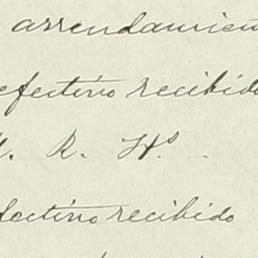 arrendamien
efectivo recibido
R. Hs.
efectivo recibido